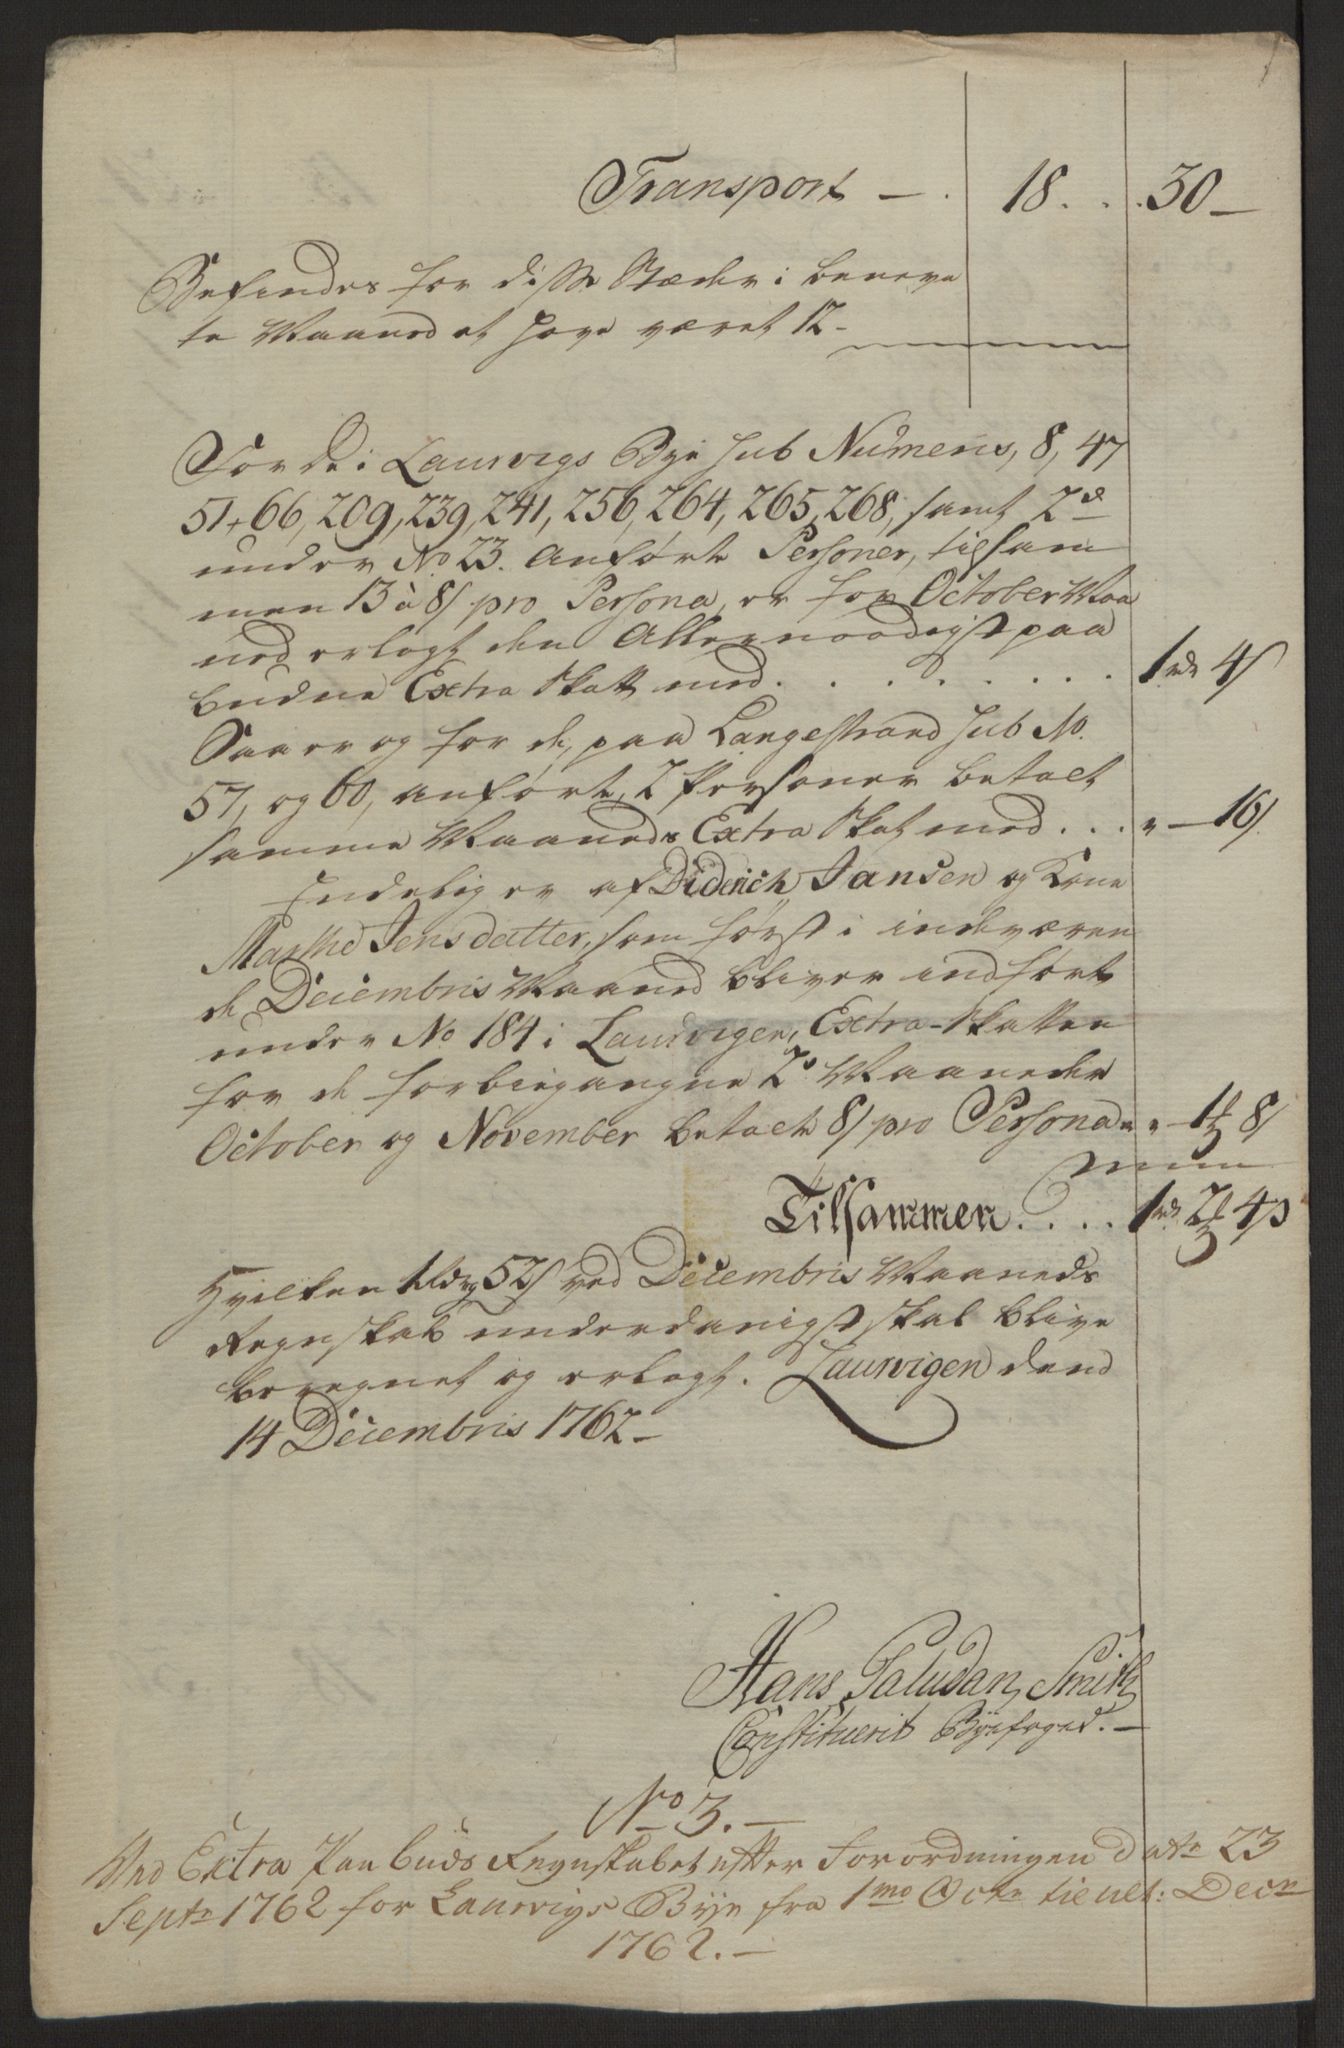 Transport — . 18 . . . 30 —
Befindes for disse Stæder i benævn
te Maaned at have været 12 —
For de i Laurvigs Bye sub Numeris, 8, 47
51, 66, 209, 239, 241, 256, 264, 265, 268, samt 2de
under No 23. anførte Personer, tilsam
men 13 à 8/ pro Persona, er for October Maa
ned erlagt den Allernaadigst paa
budne Extra Skatt med . . . . . . . 1 rdr 4/
Saa er og for de, paa Langestrand sub No.
57, og 60, anførte 2 Personer betalt
samme Maaneds Extra Skat med . . . " — 16/
Endelig er af Diderich Jansen og Kone
Marthe Jensdatter, som først i indværen
de Decembris Maaned bliver indført
under No 184 i Laurvigen, Extra-Skatten
for de forbiegangne 2de Maaneder
October og November betalt 8/ pro Persona " " — 1 8/
Tilsammen . . . . 1 rdr 2 4/
Hvilken 1 rdr 52/ ved Decembris Maaneds
Regnskab underdanigst skal blive
beregnet og erlagt. Laurvigen dend
14 Decembris 1762 —
Hans Paludan Smith
Constituerit Byefoged. —
No 3. —
Ved Extra Paabuds Regnskabet efter Forordningen date 23
Septr 1762 for Laurvigs Bye fra 1mo Octr til ult: Decr
1762. —